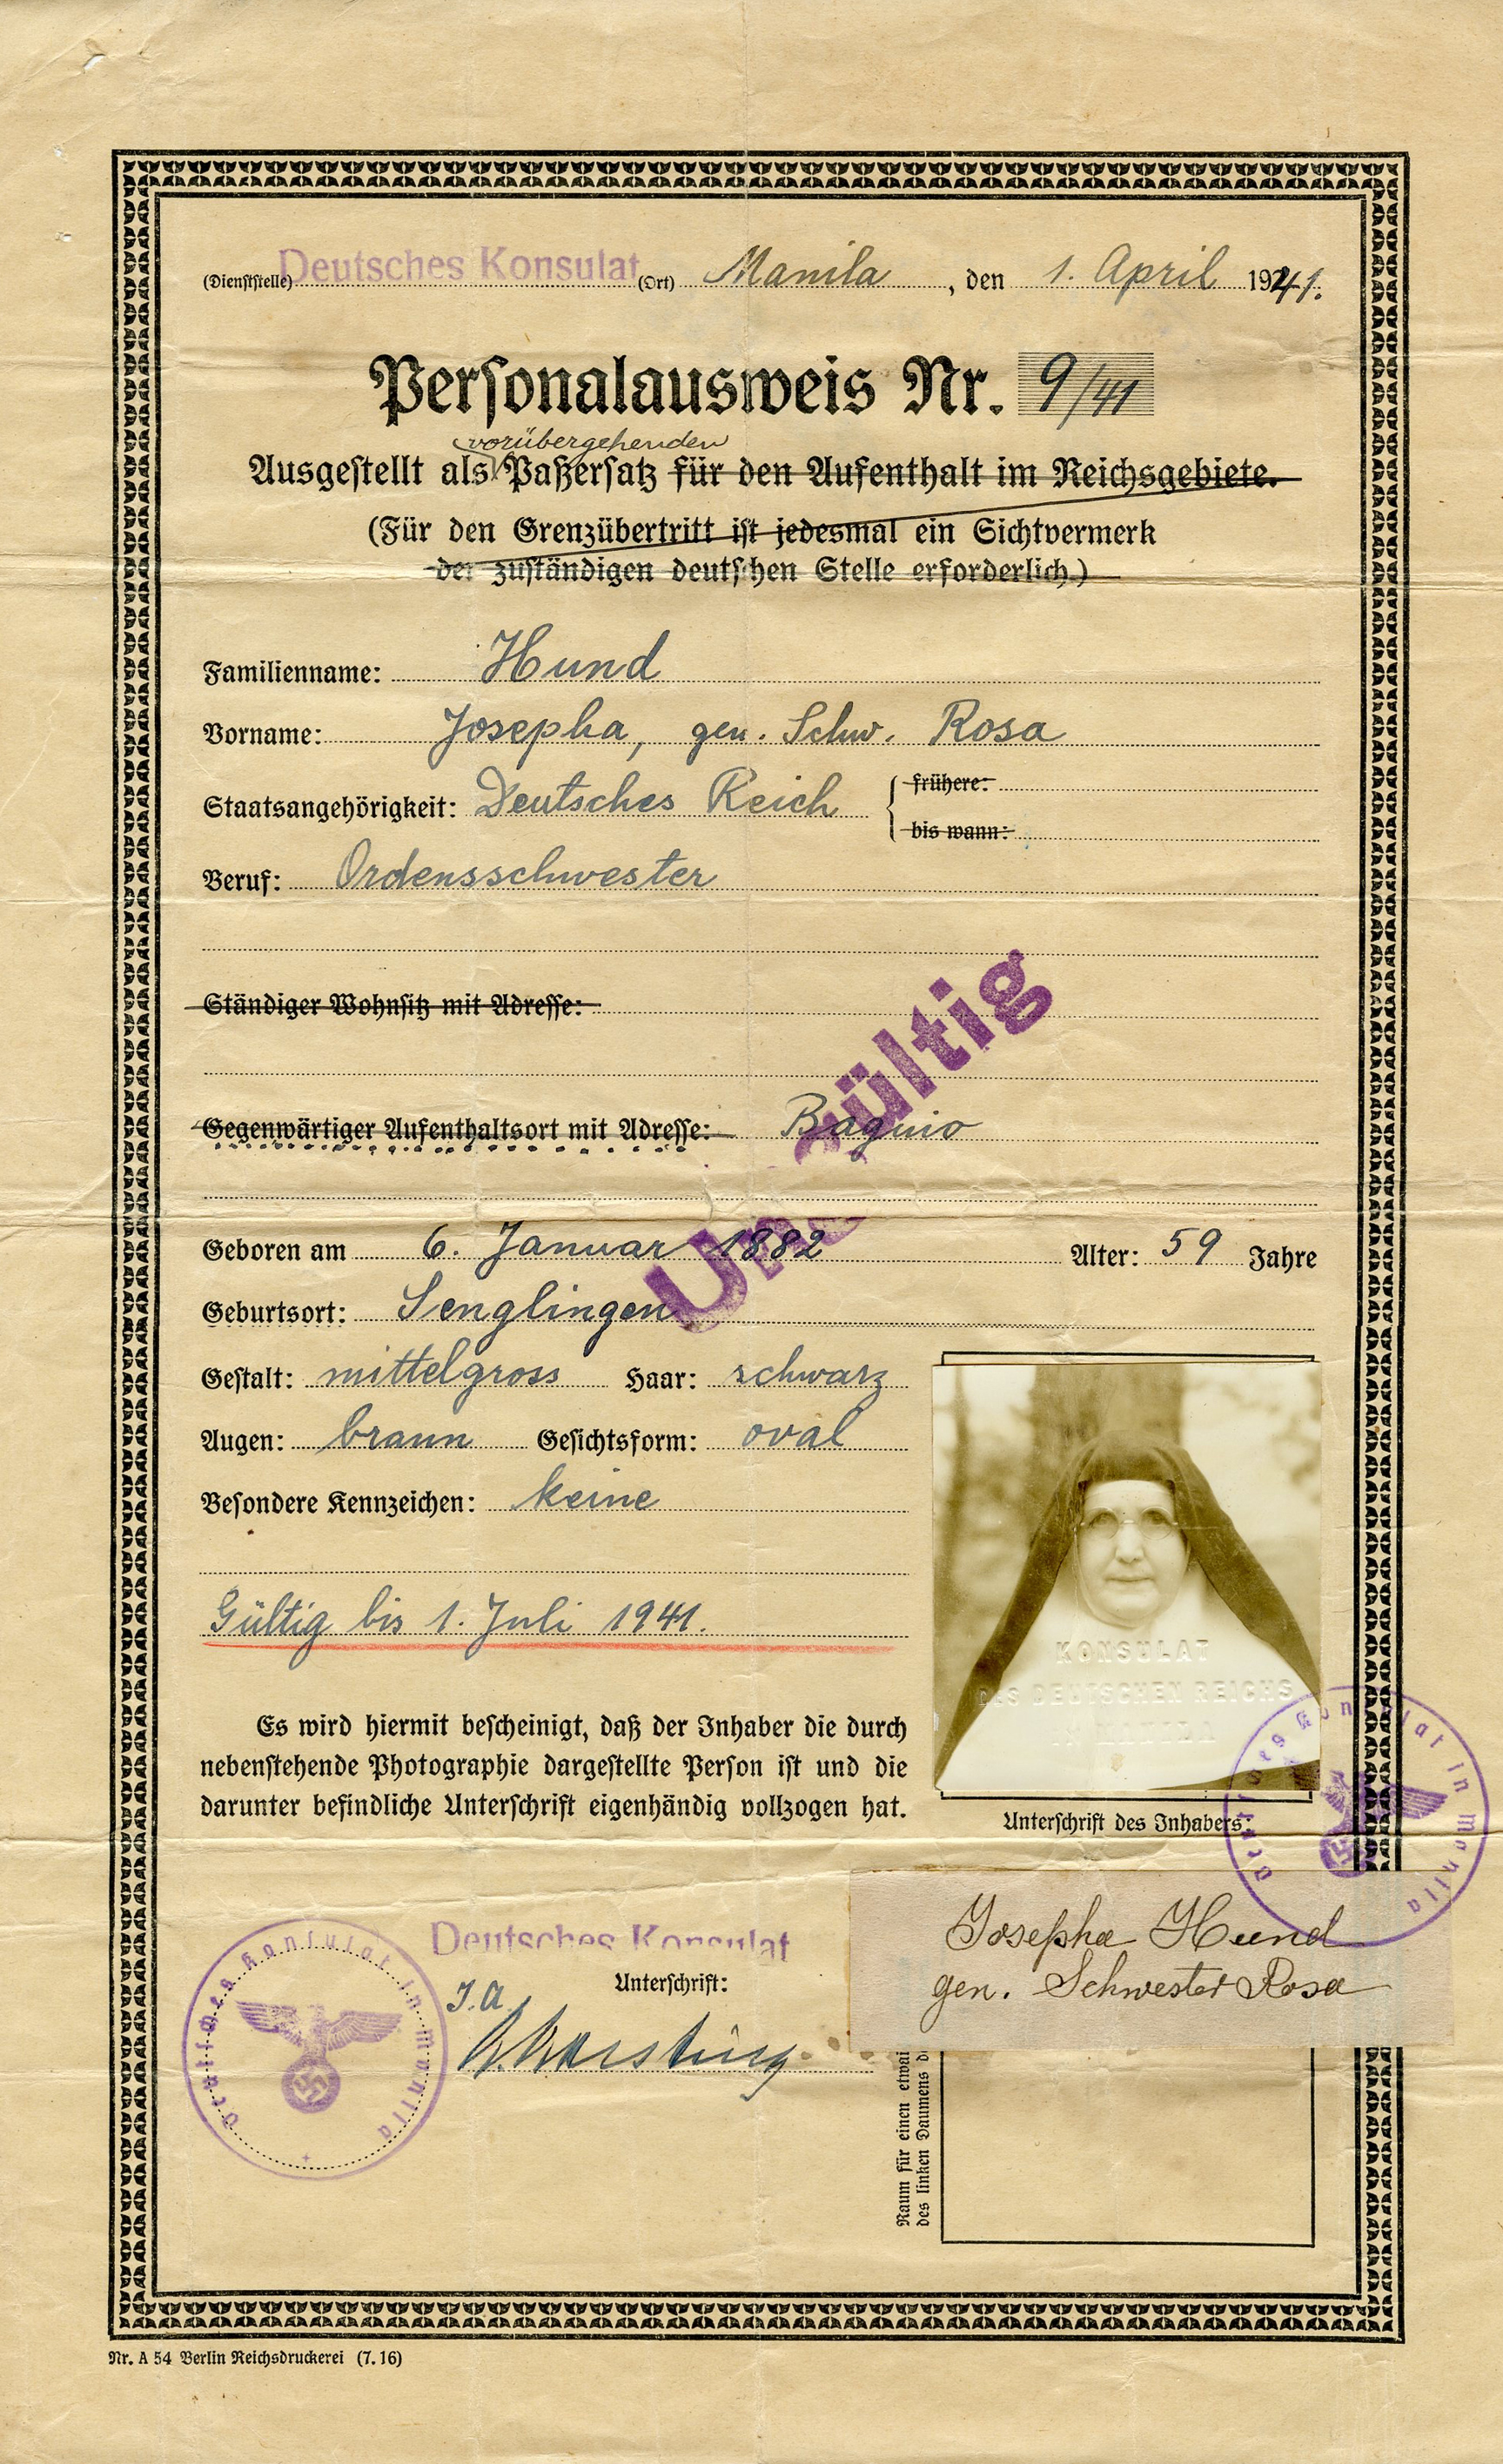 (Dienststelle) Deutsches Konsulat (Ort) Manila, den 1. April 1941.
Personalausweis Nr. 9/41
vorübergehenden
Ausgestellt als Paßersatz für den Aufenthalt im Reichsgebiete.
(Für den Grenzübertritt ist jedesmal ein Sichtvermerk
der zuständigen deutschen Stelle erforderlich.)
Familienname: Hund
Vorname: Josepha, gen. Schw. Rosa
Staatsangehörigkeit: Deutsches Reich { frühere:
bis wann:
Beruf: Ordensschwester
Ständiger Wohnsitz mit Adresse:
Ungültig
Gegenwärtiger Aufenthaltsort mit Adresse: Baguio
Geboren am 6. Januar 1882 Alter: 59 Jahre
Geburtsort: Senglingen
Gestalt: mittelgross Haar: schwarz
Augen: braun Gesichtsform: oval
Besondere Kennzeichen: keine
Gültig bis 1. Juli 1941.
KONSULAT
DES DEUTSCHEN REICHS
MANILA
Es wird hiermit bescheinigt, daß der Inhaber die durch
nebenstehende Photographie dargestellte Person ist und die
darunter befindliche Unterschrift eigenhändig vollzogen hat.
Unterschrift des Inhabers:
Deutsches Konsulat in Manila
Josepha Hund
gen. Schwester Rosa
Deutsches Konsulat
Unterschrift:
I.A.
Deutsches Konsulat in Manila
Raum für einen etwai
des linken Daumens d
Nr. A 54 Berlin Reichsdruckerei (7. 16)